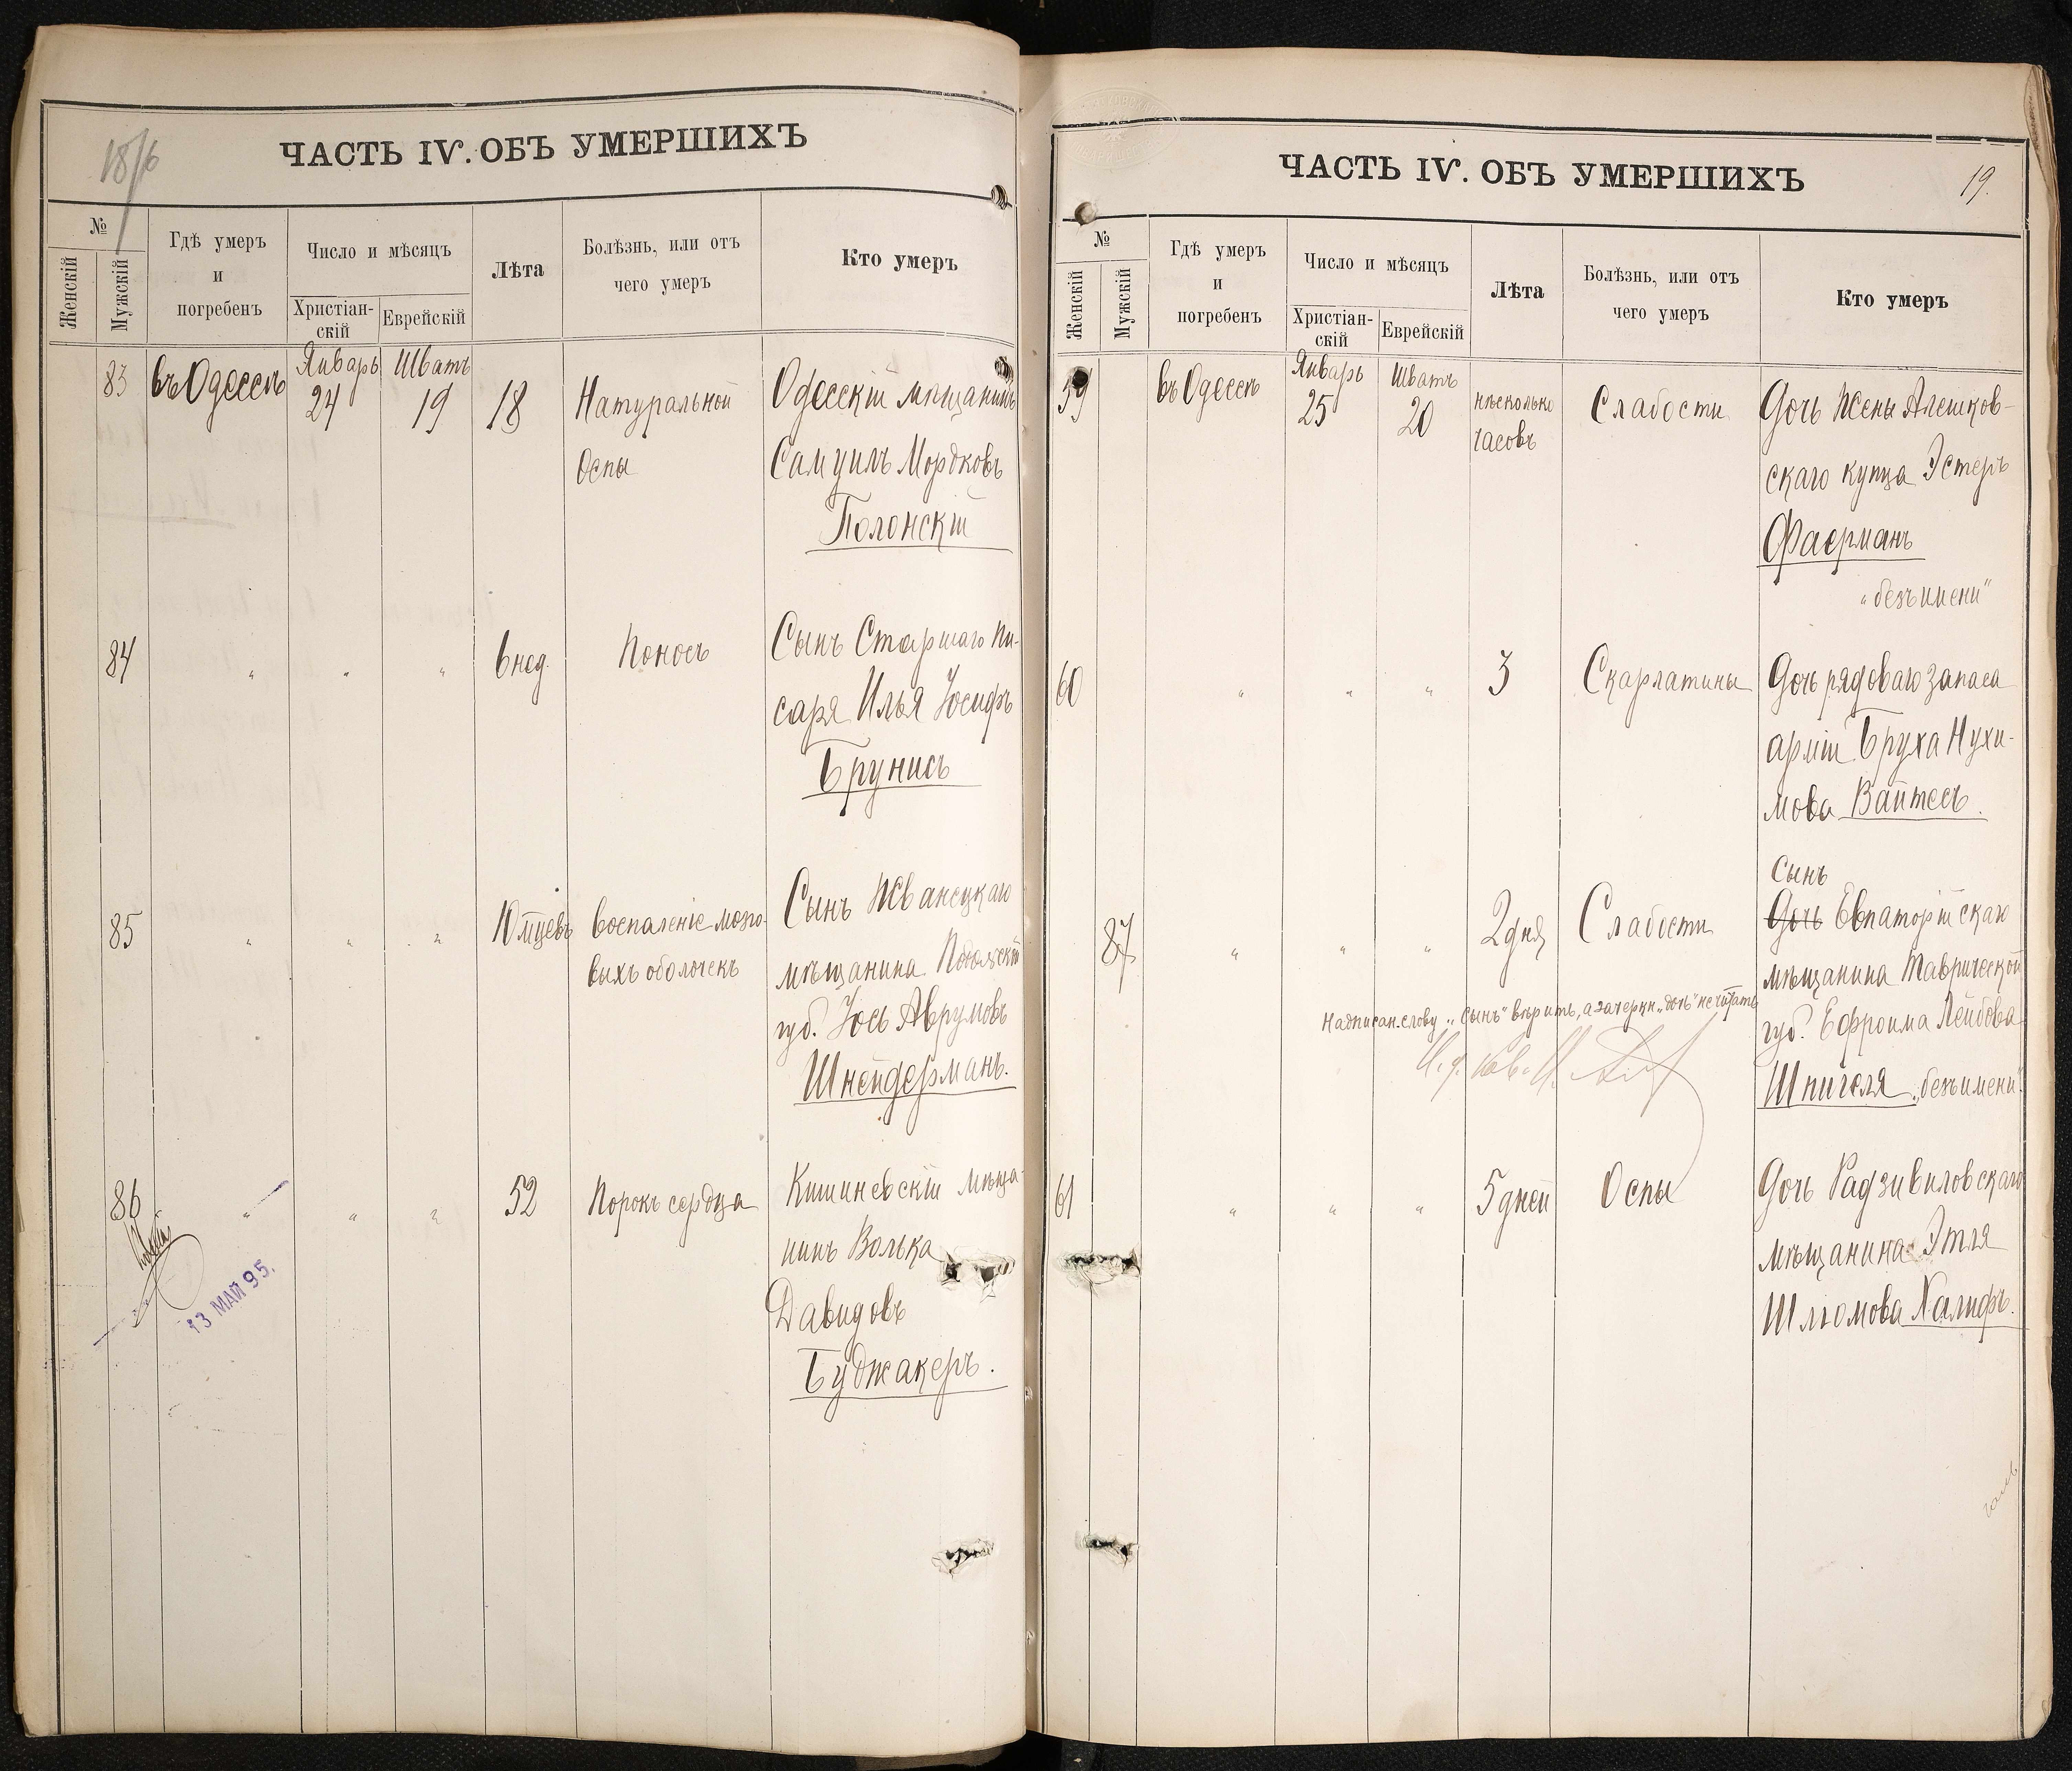 18/6
ЧАСТЬ IV. ОБЪ УМЕРШИХЪ
№
Женскій
Мужскій
Гдѣ умеръ
и
погребенъ
Число и мѣсяцъ
Христіан-
скій
Еврейскій
Лѣта
Болѣзнь, или отъ
чего умеръ
Кто умеръ
83 въ Одессѣ Январь 24 Шватъ 19 18 Натуральной Одесскій мѣщанинъ
Оспы Самуилъ Мордковъ
Полонскій
84 " " " 6 нед. Поносъ Сынъ Старшаго пи-
саря Илья Іосифъ
Брунисъ
85 " " " 10 мцевъ Воспаленіе мозго- Сынъ Жванецкаго
выхъ оболочекъ мѣщанина Подольской
губ. Іось Аврумовъ
Шнейдерманъ.
86 " " " 52 Порокъ сердца Кишиневскій мѣща-
нинъ Волька
Давидовъ
Буджакеръ.
13 МАЙ 95.
ЧАСТЬ IV. ОБЪ УМЕРШИХЪ
19.
№
Женскій
Мужскій
Гдѣ умеръ
и
погребенъ
Число и мѣсяцъ
Христіан-
скій
Еврейскій
Лѣта
Болѣзнь, или отъ
чего умеръ
Кто умеръ
59 въ Одессѣ Январь 25 Шватъ 20 нѣсколько часовъ Слабости Дочь жены Алешков-
скаго купца Эстеръ
Фаерманъ
"безъ имени"
60 " " " 3 Скарлатины Дочь рядоваго запаса
арміи Бруха Нухи-
мова Вайтесъ.
Сынъ
87 " " " 2 дня Слабости Дочь Евпаторійскаго
мѣщанина Таврической
Надписан. слову "Сынъ" вѣрить, а зачеркн. "дочь" не читать
губ. Ефроима Лейбова
Шпигеля "безъ имени".
61 " " " 5 дней Оспы Дочь Радзивиловскаго
мѣщанина Этля
Шлюмова Халифъ.